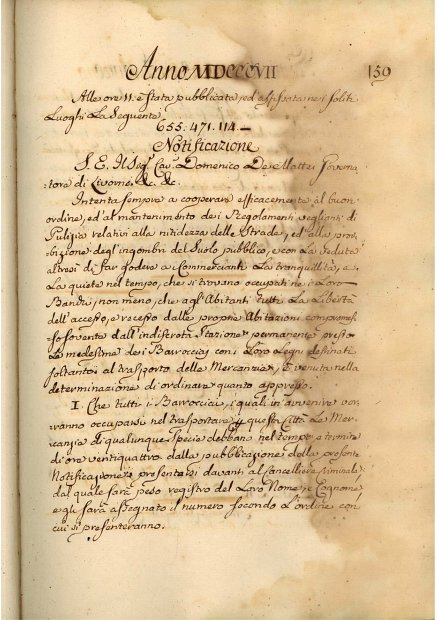 Anno MDCCCVII 159
Alle ore 11. è stata pubblicata, ed affissata nei soliti
Luoghi La Seguente
655. 471. 114. —
Notificazione
S. E. Il Sig. Cav. Domenico De Mattei Governa,
,tore di Livorno, &c. &c.
Intenta sempre a cooperare efficacemente al buon
ordine, ed al mantenimento dei Regolamenti veglianti di
Pulizia relativi alla nitidezza delle Strade, ed alla proi,
,bizione degl'ingombri del Suolo pubblico, e con La veduta
altresì di far godere ai Commercianti La tranquillità, e
La quiete nel tempo, che si trovano occupati nei Loro
Banchi, non meno, che agl'Abitanti tutti La Libertà
dell'accesso, e recesso dalle proprie Abitazioni compromessa
sofovente dall'indiscreta Stazione permanente presso
Le medesime dei Barrocciaj con i Loro Legni destinati
soltanto al trasporto della Mercanzia, è venuta nella
determinazione di ordinare quanto appresso.
I. Che tutti i Barrocciai, i quali in avvenire vor,
,ranno occuparsi nel trasportare per questa Città Le Mer,
,canzie di qualunque Specie debbano nel tempo e termine
di ore ventiquattro dalla pubblicazione della presente
Notificazione presentarsi davanti al Cancelliere Criminale
dal quale sarà preso registro del Loro Nome, e Cognome,
e gli sarà assegnato il numero secondo L'ordine con
cui si presenteranno.